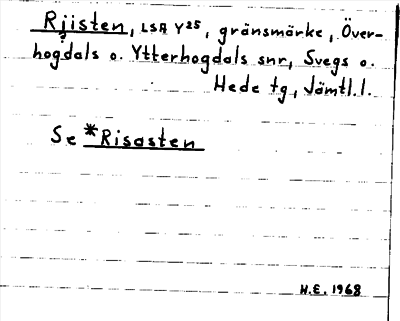 Rjisten, LSA Y25, gränsmärke, Över-
hogdals o. Ytterhogdals snr, Svegs o.
Hede tg, Jämtl.l.
Se *Risasten
H.E. 1968